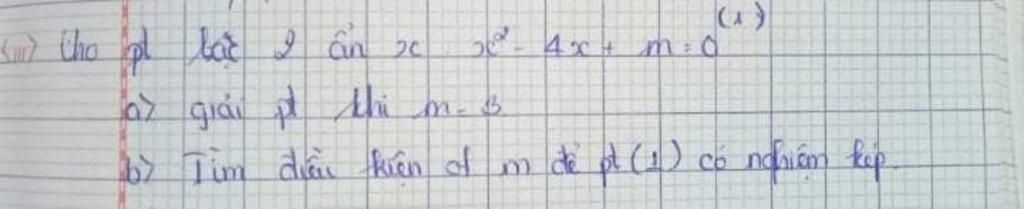 Cho pt bậc 2 ẩn x : x² - 4x + m = 0 (1)
a) giải pt khi m = 3
b) Tìm điều kiện of m để pt (1) có nghiệm kép